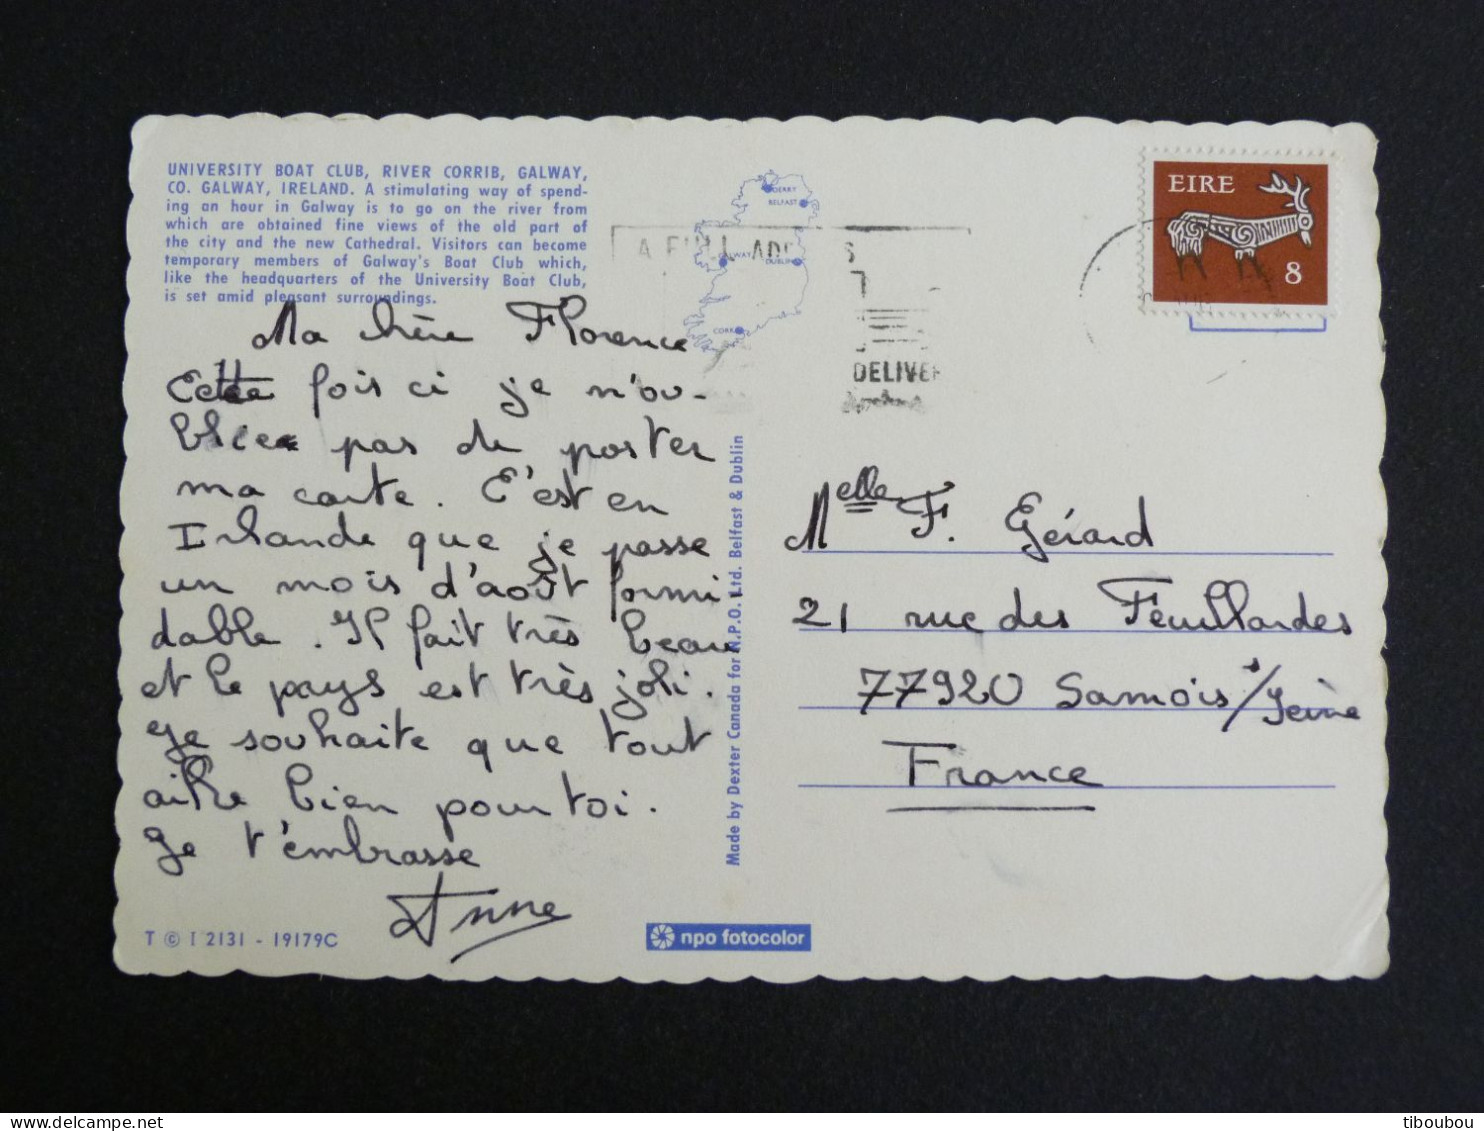 UNIVERSITY BOAT CLUB, RIVER CORRIB, GALWAY,
CO. GALWAY, IRELAND. A stimulating way of spend-
ing an hour in Galway is to go on the river from
which are obtained fine views of the old part of
the city and the new Cathedral. Visitors can become
temporary members of Galway's Boat Club which,
like the headquarters of the University Boat Club,
is set amid pleasant surroundings.
Ma chère Florence
Cette fois ci je n'ou-
blie pas de poster
ma carte. C'est en
Irlande que je passe
un mois d'août formi-
dable. Il fait très beau
et le pays est très joli.
Je souhaite que tout
aille bien pour toi.
Je t'embrasse
Anne
T © I 2131 - 19179C
npo fotocolor
Made by Dexter Canada for N.P.O. Ltd. Belfast & Dublin
DERRY
BELFAST
GALWAY
DUBLIN
CORK
A FULL ADDRESS
DELIVER
EIRE
8
Melle F. Gérard
21 rue des Feuillardes
77920 Samois s/Seine
France
tiboubou